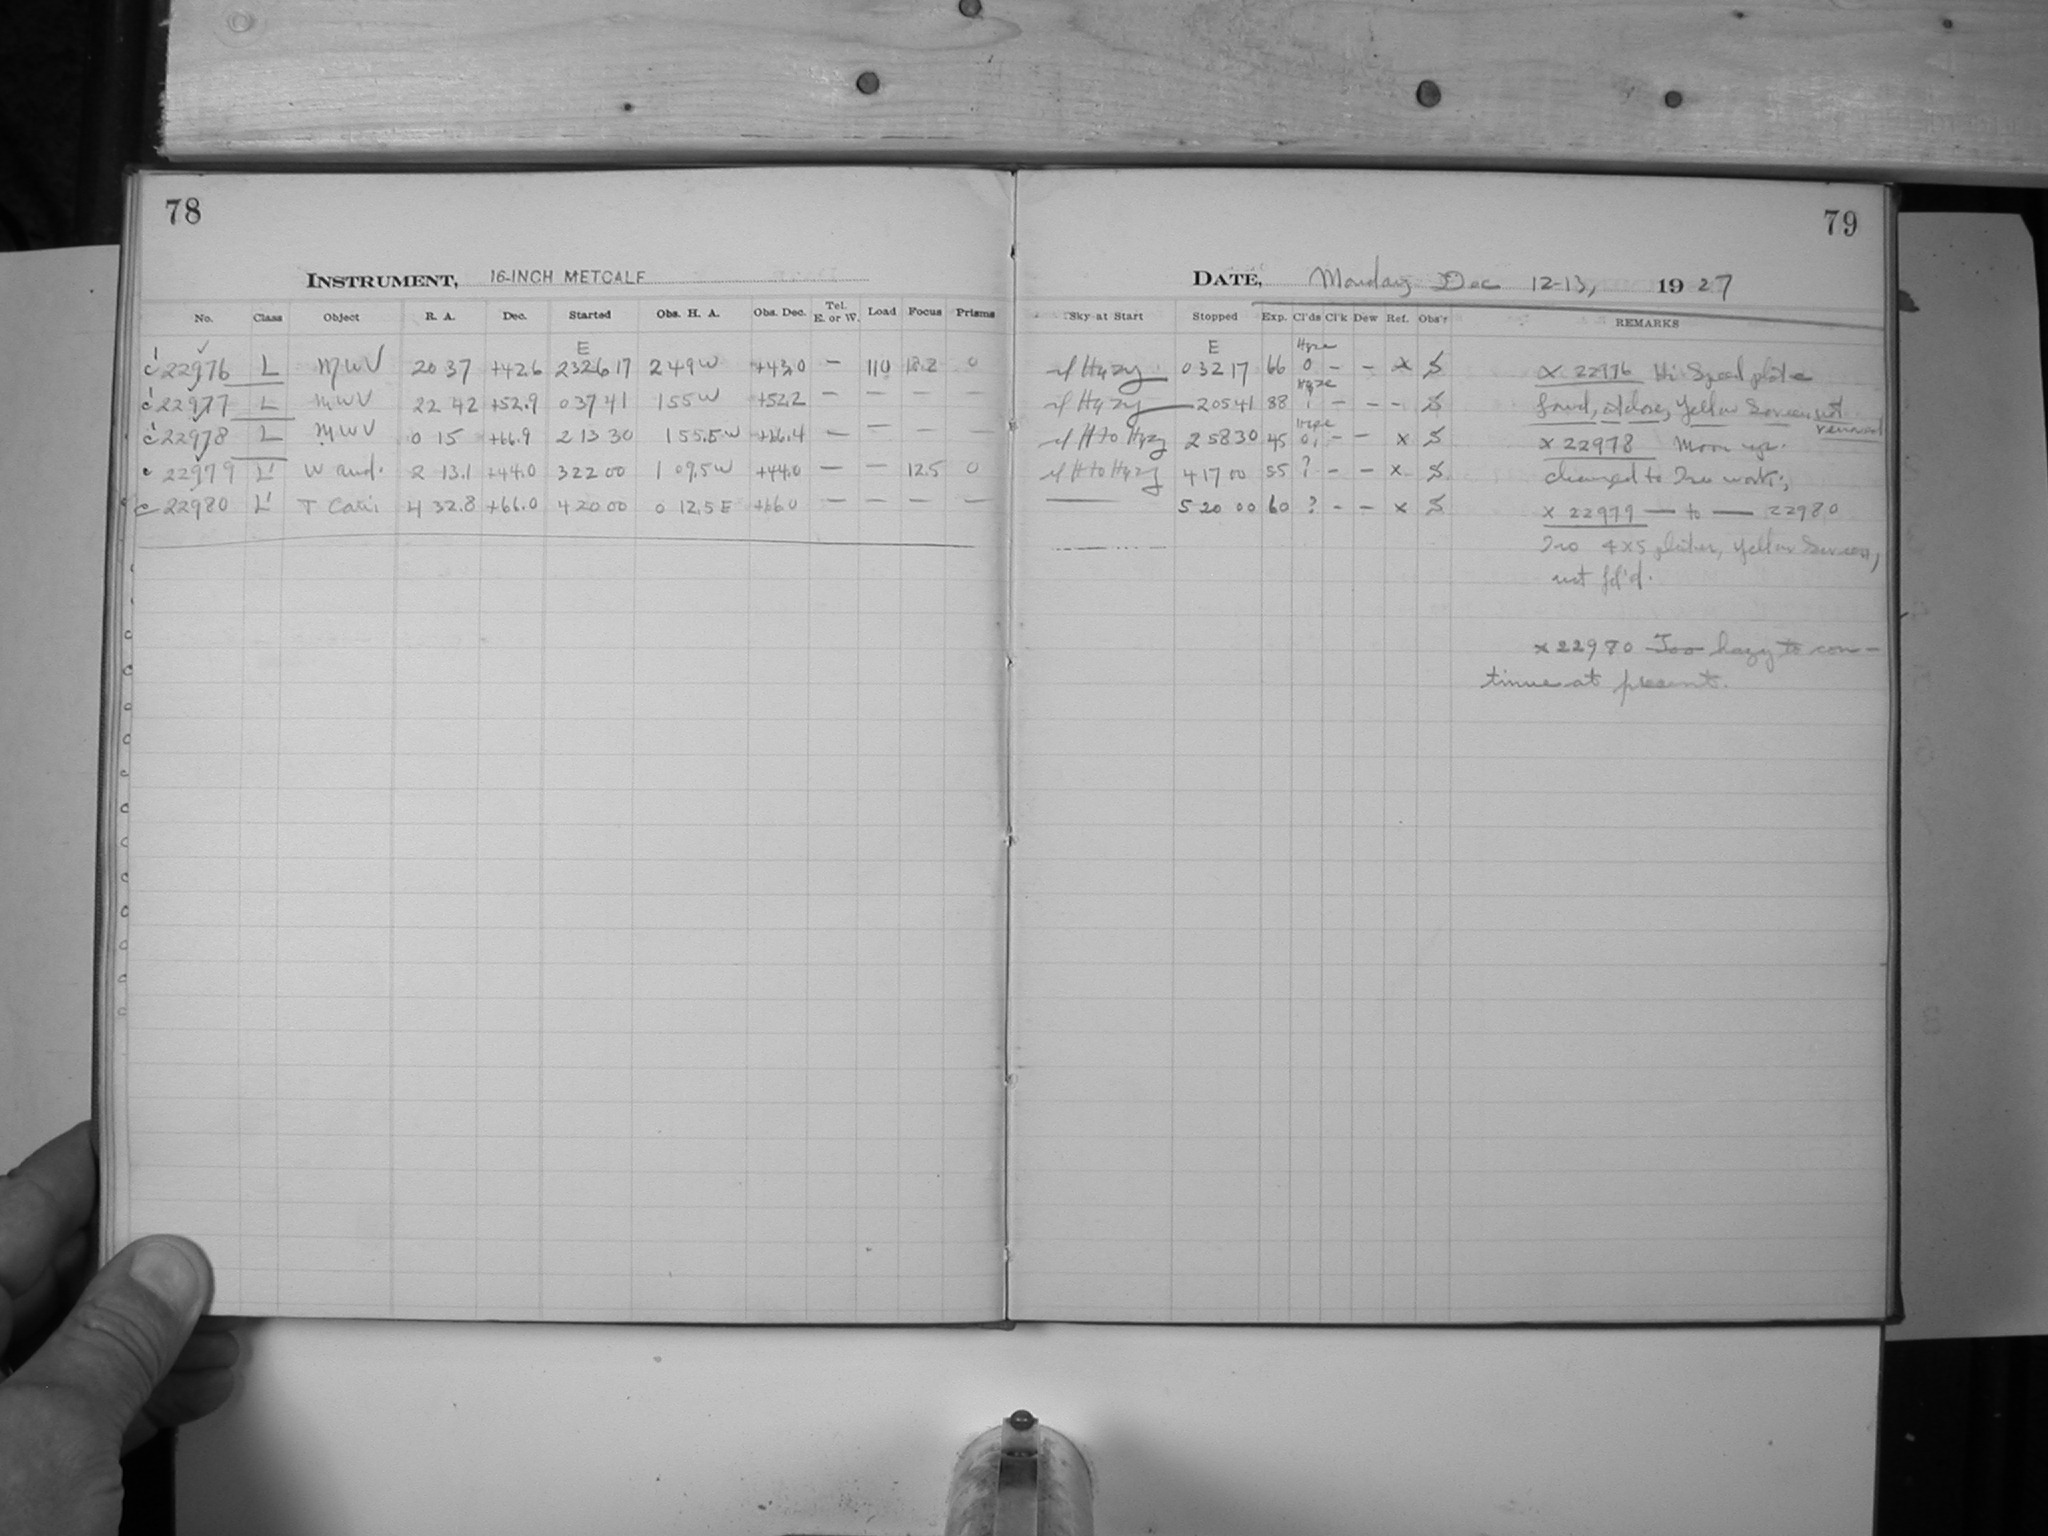 78
79
INSTRUMENT, 16-INCH METCALF
DATE, Monday Dec 12-13, 1927
No. Class Object R. A. Dec. Started Obs. H. A. Obs. Dec. Tel. E. or W. Load Focus Prisms
Sky at Start Stopped Exp. Cl'ds Cl'k Dew Ref. Obs'r REMARKS
E
E Haze
c 22976 L MWV 20 37 +42.6 23 26 17 2 49 W +43.0 — 110 0
Hazy 0 32 17 66 0 - - x S
x 22976 Hi Speed plate
Haze
c 22977 L MWV 22 42 +52.9 0 37 41 1 55 W +52.2 — — — —
Hazy 2 05 41 88 - - - S
Yellow Screen not
c 22978 L MWV 0 15 +66.9 2 13 30 1 55.5 W +66.4 — — — —
Haze
H to Hazy 2 58 30 45 0 - - x S
x 22978 Moon up.
c 22979 L' W And. 2 13.1 +44.0 3 22 00 1 09.5 W +44.0 — — 12.5 0
H to Hazy 4 17 00 55 ? - - x S
changed to work;
c 22980 L' 4 32.8 +66.0 4 20 00 0 12.5 E +66.0 — — — —
5 20 00 60 ? - - x S
x 22979 — to — 22980
4x5 plates, Yellow Screen,
not
x 22980 Too hazy to con-
tinue at present.